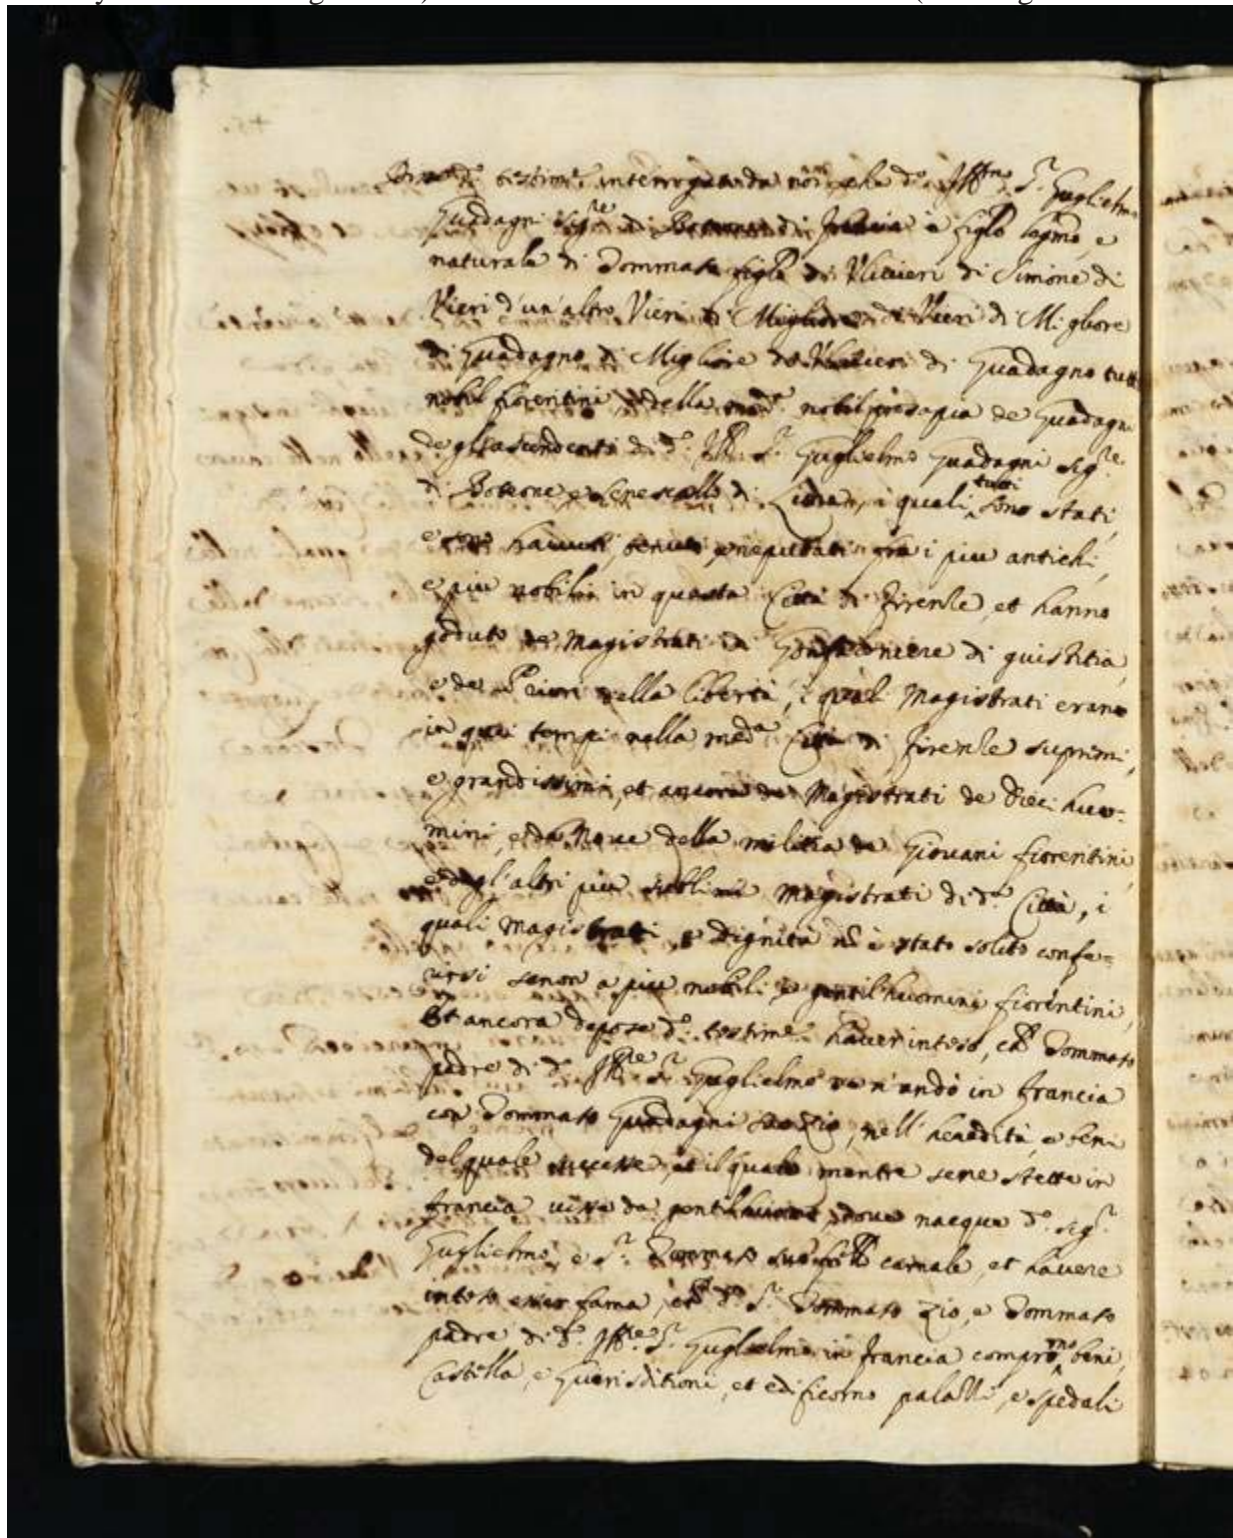 testimo: interrogato da noi che d.º Ill.mo S.r Guglielmo
Guadagni sig.re di di Francia è figlo legmo, e
naturale di Tommaso figlo di Ulivieri di Simone di
Vieri d'un'altro Vieri di Migliore di Vieri di Migliore
di Guadagno di Migliore di Ulivieri di Guadagno tutti
nobil fiorentini, della med.ª nobil prosapia de Guadagni
de gl'ascendenti di d.º Ill. S.r Guglielmo Guadagni sig.re
di Boteone e Senescallo di i quali tutti sono stati,
e sono havuti, tenuti, e reputati fra i piu antichi,
e piu nobili in questa Città di Firenze, et hanno
goduto de Magistrati di Gonfaloniere di giustitia,
e de Priori della libertà, i quali Magistrati erano
in quei tempi nella med.ª Città di Firenze supremi,
e grandissimi, et ancora de Magistrati de Dieci huo-
mini, e de Nove della militia de Giovani fiorentini
e degl'altri piu sublimi magistrati di d.ª Città, i
quali magistrati, e dignità nõ è stato solito confe=
rirsi senon a piu nobili, e gentil'huomini fiorentini,
Et ancora depose d.º testimo: haver inteso, che Tommaso
padre di d.º Ill.re S.r Guglielmo se n'andò in Francia
con Tommaso Guadagni suo Zio, nell'heredità, e beni
del quale successe, et il quale mentre sene stette in
Francia visse da gentilhuomo, dove nacque d.º sig.r
Guglielmo, e S.r Tommaso suo frello carnale, et havere
inteso esser fama, che d.º S.r Tommaso zio, e Tommaso
padre di d.º Ill.re S.r Guglielmo in Francia comprorno beni,
Castella, e Giuriditioni, et edificorno palazzi, e spedali